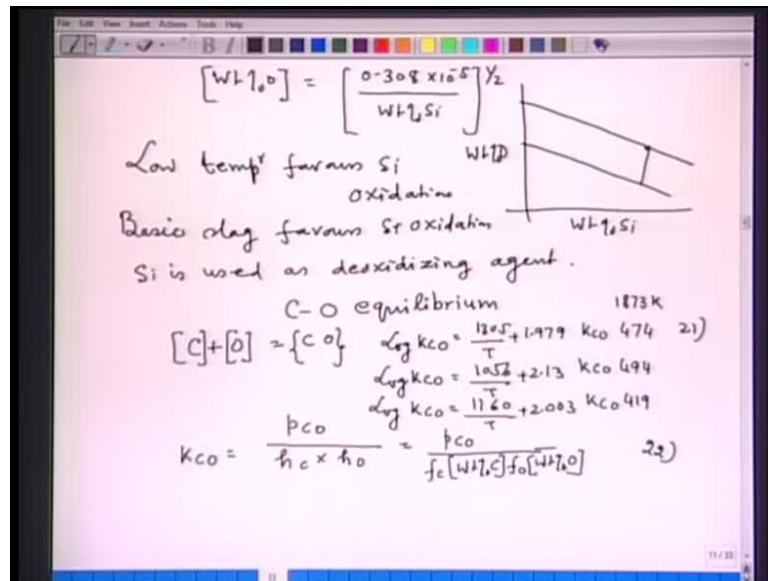 File Edit View Insert Actions Tools Help
[wt%O] = [0.308 × 10⁻⁵ / wt%Si]^1/2
Low tempr favours Si
oxidation
wt%O
wt%Si
Basic slag favours Si oxidation
Si is used as deoxidizing agent.
C-O equilibrium 1873 K
[C]+[O] = {CO} log Kco = 1305/T + 1.979 Kco 474 21)
log Kco = 1056/T + 2.13 Kco 494
log Kco = 1160/T + 2.003 Kco 419
Kco = pco / hc × ho = pco / fc[wt%C]fo[wt%O] 22)
11/33